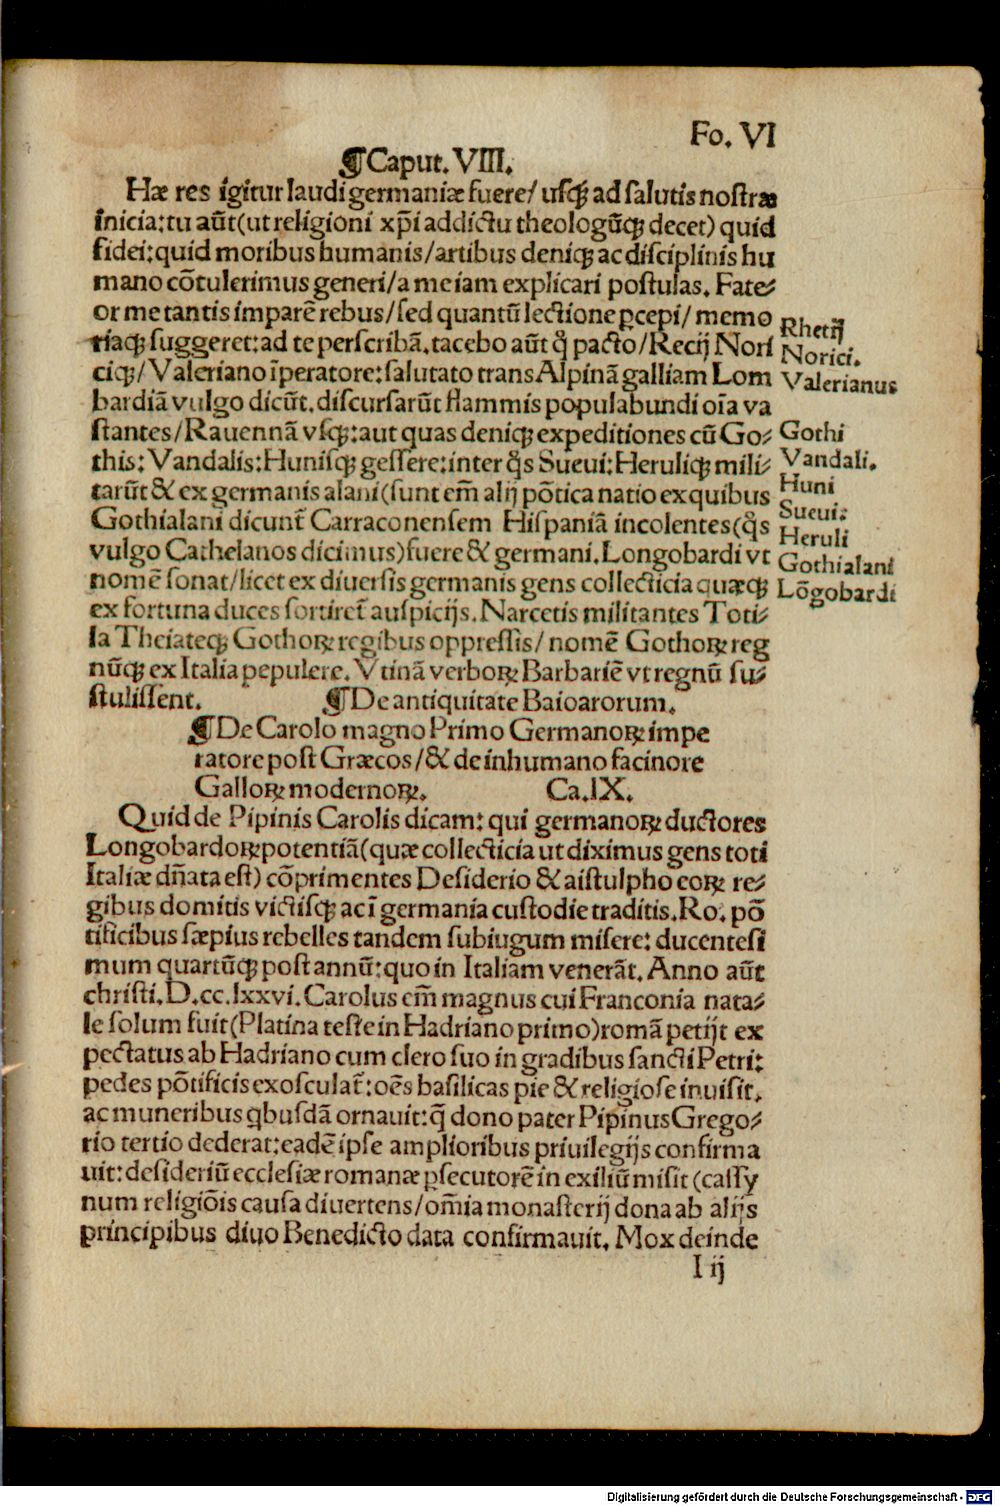 Fo. VI
¶Caput. VIII.
Hæ res igitur laudi germaniæ fuere/ usqꝫ ad salutis nostræ
inicia: tu aut̃(ut religioni xp̃i addictu theologũqꝫ decet) quid
fidei: quid moribus humanis/artibus deniqꝫ ac disciplinis hu
mano cõtulerimus generi/a me iam explicari postulas. Fate⸗
or me tantis imparẽ rebus/sed quantũ lectione ꝑcepi/ memo
riaqꝫ suggeret: ad te perscribã. tacebo aut̃ q̊ pacto/Recij Nori
ciqꝫ/ Valeriano ĩperatore: salutato trans Alpinã galliam Lom
bardiã vulgo dicũt. discursarũt flammis populabundi oĩa va
stantes/Rauennã vsqꝫ: aut quas deniqꝫ expeditiones cũ Go⸗
this: Vandalis: Hunisqꝫ gessere: inter q̊s Sueui: Heruliqꝫ mili⸗
tarũt & ex germanis alani(sunt em̃ alij põtica natio ex quibus
Gothialani dicunt̃ Carraconensem Hispaniã incolentes(q̊s
vulgo Cathelanos dicimus)fuere & germani. Longobardi vt
nomẽ sonat/licet ex diuersis germanis gens collecticia quæqꝫ
ex fortuna duces sortiret̃ auspicijs. Narcetis militantes Toti⸗
la Theiateqꝫ Gothoꝝ regibus oppressis/ nomẽ Gothoꝝ reg
nũqꝫ ex Italia pepulere. Vtinã verboꝝ Barbariẽ vt regnũ su⸗
stulissent. ¶De antiquitate Baioarorum.
¶De Carolo magno Primo Germanoꝝ impe
ratore post Græcos/& de inhumano facinore
Galloꝝ modernoꝝ. Ca. IX.
Quid de Pipinis Carolis dicam: qui germanoꝝ ductores
Longobardoꝝ potentiã(quæ collecticia ut diximus gens toti
Italiæ dñata est) cõprimentes Desiderio & aistulpho eoꝝ re⸗
gibus domitis victisqꝫ ac ĩ germania custodie traditis. Ro. põ
tificibus sæpius rebelles tandem subiugum misere: ducentesi
mum quartũqꝫ post annũ: quo in Italiam venerãt. Anno aut̃
christi. D. cc. lxxvi. Carolus em̃ magnus cui Franconia nata⸗
le solum fuit(Platina teste in Hadriano primo)romã petijt ex
pectatus ab Hadriano cum clero suo in gradibus sancti Petri:
pedes põtificis exosculat̃: oẽs basilicas pie & religiose inuisit.
ac muneribus qbusdã ornauit: q̃ dono pater Pipinus Grego⸗
rio tertio dederat: eadẽ ipse amplioribus priuilegijs confirma
uit: desideriũ ecclesiæ romanæ ꝑsecutorẽ in exiliũ misit (cassy
num religiõis causa diuertens/om̃ia monasterij dona ab alijs
principibus diuo Benedicto data confirmauit. Mox deinde
I ij
Rhetij
Norici.
Valerianus
Gothi
Vandali.
Huni
Sueui:
Heruli
Gothialani
Lõgobardi
Digitalisierung gefördert durch die Deutsche Forschungsgemeinschaft - DFG